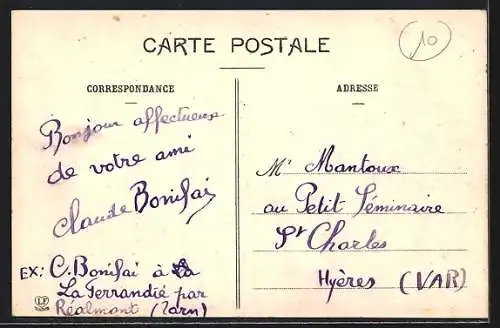 CARTE POSTALE
10
CORRESPONDANCE
Bonjour affectueux
de votre ami
Claude Bonifai
EX: C. Bonifai à la
La Terrandié par
Réalmont (Tarn)
LF
ADRESSE
Mr Mantoux
au Petit Séminaire
St Charles
Hyères (VAR)